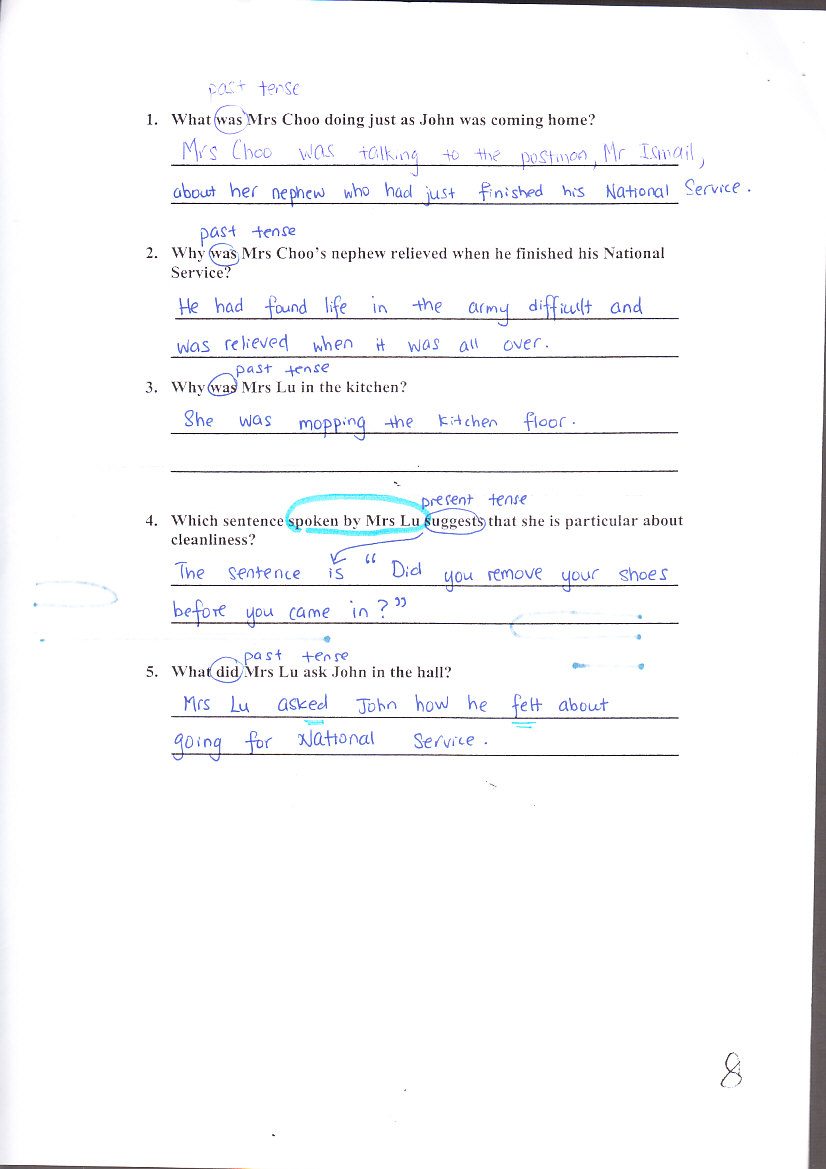 past tense
1. What was Mrs Choo doing just as John was coming home?
Mrs Choo was talking to the postman, Mr Ismail,
about her nephew who had just finished his National Service.
past tense
2. Why was Mrs Choo's nephew relieved when he finished his National
Service?
He had found life in the army difficult and
was relieved when it was all over.
past tense
3. Why was Mrs Lu in the kitchen?
She was mopping the kitchen floor.
present tense
4. Which sentence spoken by Mrs Lu suggests that she is particular about
cleanliness?
The sentence is "Did you remove your shoes
before you came in?"
past tense
5. What did Mrs Lu ask John in the hall?
Mrs Lu asked John how he felt about
going for National Service.
8